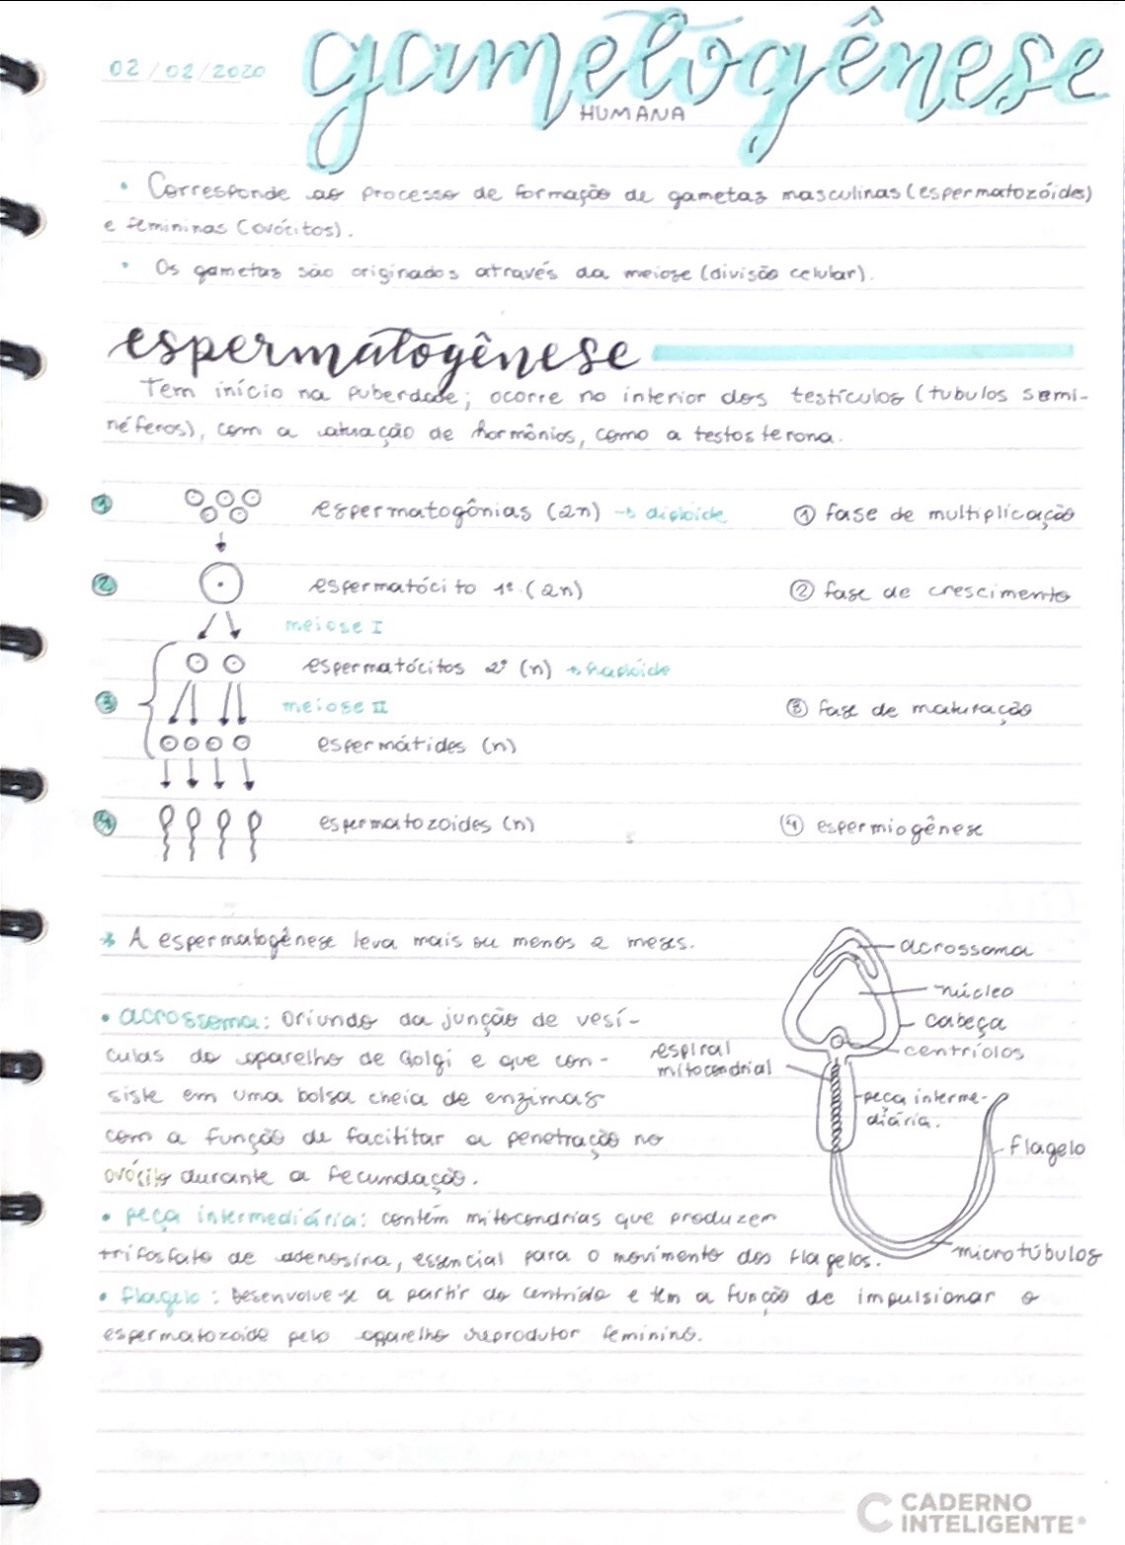 02/02/2020
gametogênese
HUMANA
• Corresponde ao processo de formação de gametas masculinas (espermatozóides)
e femininas (ovócitos).
• Os gametas são originados através da meiose (divisão celular).
espermatogênese
Tem início na puberdade; ocorre no interior dos testículos (tubulos semi-
níferos), com a atuação de hormônios, como a testosterona.
1 espermatogônias (2n) → diploide ① fase de multiplicação
2 espermatócito 1º (2n) ② fase de crescimento
meiose I
espermatócitos 2º (n) → haploide
3 meiose II ③ fase de maturação
espermátides (n)
4 espermatozoides (n) ④ espermiogênese
* A espermatogênese leva mais ou menos 2 meses.
acrossoma
núcleo
cabeça
centríolos
espiral
mitocondrial
peça interme-
diária.
flagelo
microtúbulos
• acrossoma: oriundo da junção de vesí-
culas do aparelho de Golgi e que con-
siste em uma bolsa cheia de enzimas
com a função de facilitar a penetração no
ovócito durante a fecundação.
• peça intermediária: contém mitocondrias que produzem
trifosfato de adenosina, essencial para o movimento dos flagelos.
• flagelo: Desenvolve-se a partir do centríolo e tem a função de impulsionar o
espermatozoide pelo aparelho reprodutor feminino.
CADERNO
INTELIGENTE®